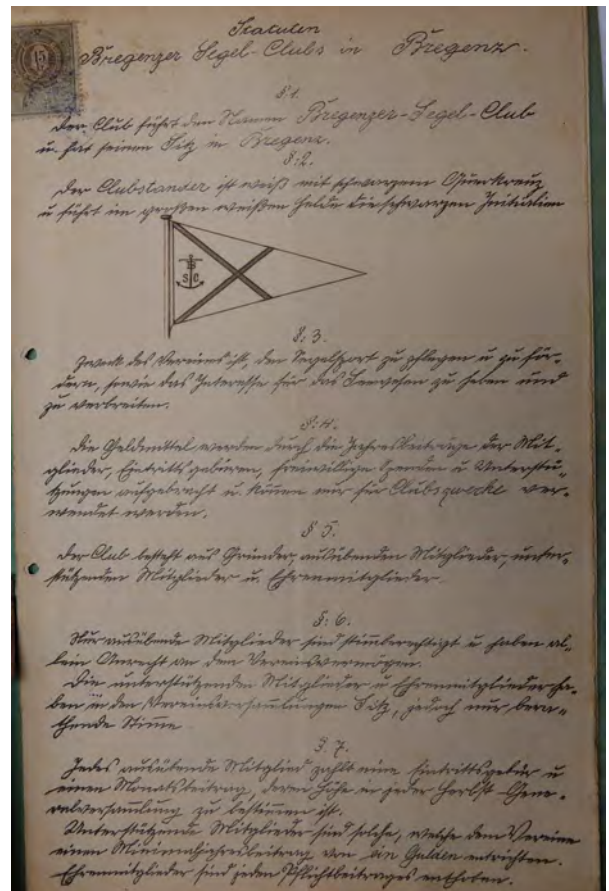 Statuten
Bregenzer Segel-Clubs in Bregenz.
15
§ 1.
Der Club führt den Namen Bregenzer-Segel-Club
u. hat seinen Sitz in Bregenz.
§: 2.
Der Clubstander ist weiß mit schwarzem Querkreuz
u führt im großen weißen Felde die schwarzen Initialien
B
S C
§: 3.
Zweck des Vereins ist, den Segelsport zu pflegen u zu för-
dern, sowie das Interesse für das Seewesen zu heben und
zu verbreiten.
§: 4.
Die Geldmittel werden durch die Jahresbeiträge der Mit-
glieder, Eintrittsgebüren, freiwillige Spenden u Unterstü-
tzungen aufgebracht u. können nur für Clubszwecke ver-
wendet werden.
§ 5.
Der Club besteht aus Gründer, ausübenden Mitglieder, unter-
stützenden Mitglieder u. Ehrenmitglieder.
§: 6.
Nur ausübende Mitglieder sind stimberechtigt u haben al-
lein Anrecht an dem Vereinsvermögen.
Die unterstützenden Mitglieder u Ehrenmitglieder ha-
ben in den Vereinsversamlungen Sitz, jedoch nur bera-
thende Stimme
§. 7.
Jedes ausübende Mitglied zahlt eine Eintrittsgebür u
einen Monatsbeitrag, deren Höhe in jeder Herbst-Gene-
ralversamlung zu bestimen ist.
Unterstützende Mitglieder sind solche, welche dem Vereine
einen Minimaljahresbeitrag von ein Gulden entrichten.
Ehrenmitglieder sind jeden Pflichtbeitrages enthoben.